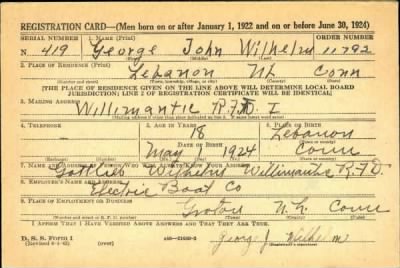 REGISTRATION CARD—(Men born on or after January 1, 1922 and on or before June 30, 1924)
SERIAL NUMBER 1. NAME (Print) ORDER NUMBER
N 419 George John Wilhelm 11792
(First) (Middle) (Last)
2. PLACE OF RESIDENCE (Print)
Lebanon NL Conn
(Number and street) (Town, township, village, or city) (County) (State)
[THE PLACE OF RESIDENCE GIVEN ON THE LINE ABOVE WILL DETERMINE LOCAL BOARD
JURISDICTION; LINE 2 OF REGISTRATION CERTIFICATE WILL BE IDENTICAL]
3. MAILING ADDRESS
Willimantic R.F.D. 1
4. TELEPHONE 5. AGE IN YEARS 6. PLACE OF BIRTH
— 18 Lebanon
DATE OF BIRTH
May 1 1924 Conn
7. NAME AND ADDRESS OF PERSON WHO WILL ALWAYS KNOW YOUR ADDRESS
Wilhelm Willimantic R.F.D.
8. EMPLOYER'S NAME AND ADDRESS
Electric Boat Co
9. PLACE OF EMPLOYMENT OR BUSINESS
Groton N.L. Conn
(Number and street or R. F. D. number) (Town) (County) (State)
I AFFIRM THAT I HAVE VERIFIED ABOVE ANSWERS AND THAT THEY ARE TRUE.
D. S. S. Form 1
George J Wilhelm
(Registrant's signature)